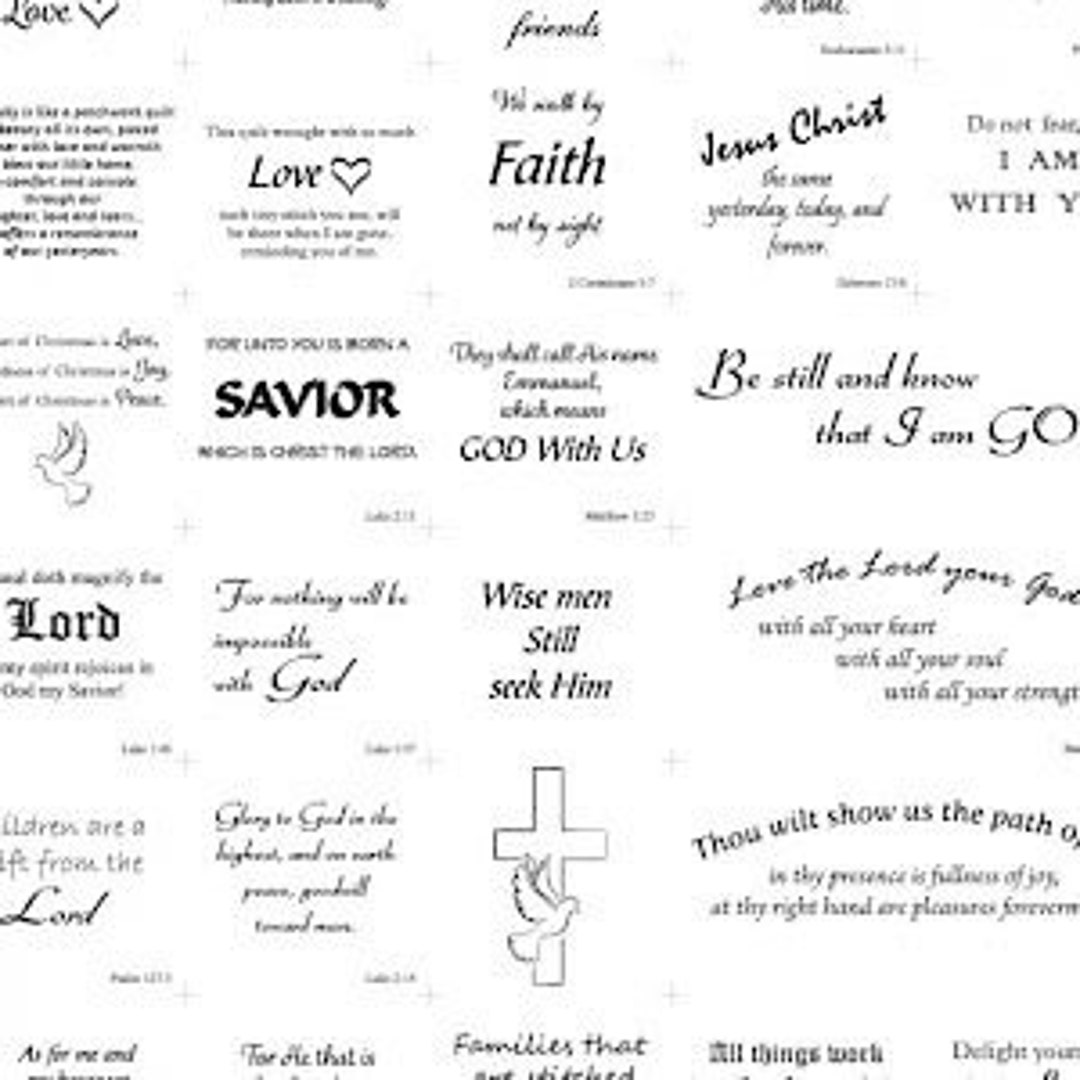 Love
friends
His time.
Ecclesiastes 3:11
is like a patchwork quilt
beauty all its own, pieced
with love and warmth
bless our little home.
comfort and console
through our
laughter, love and tears...
offers a remembrance
of our yesteryears.
This quilt wrought with so much
Love
each tiny stitch you see, will
be there when I am gone,
reminding you of me.
We walk by
Faith
not by sight
2 Corinthians 5:7
Jesus Christ
the same
yesterday, today, and
forever.
Hebrews 13:8
Do not fear,
I AM
WITH Y
of Christmas is Love,
of Christmas is Joy,
of Christmas is Peace.
FOR UNTO YOU IS BORN A
SAVIOR
WHICH IS CHRIST THE LORD.
Luke 2:11
They shall call His name
Emmanuel,
which means
GOD With Us
Matthew 1:23
Be still and know
that I am GO
doth magnify the
Lord
my spirit rejoices in
God my Savior!
Luke 1:46
For nothing will be
impossible
with God
Luke 1:37
Wise men
Still
seek Him
Love the Lord your God
with all your heart
with all your soul
with all your strengt
ildren are a
ift from the
Lord
Psalm 127:3
Glory to God in the
highest, and on earth
peace, goodwill
toward men.
Luke 2:14
Thou wilt show us the path o
in thy presence is fullness of joy,
at thy right hand are pleasures foreverm
As for me and
my house
For He that is
Families that
are stitched
All things work
Delight your